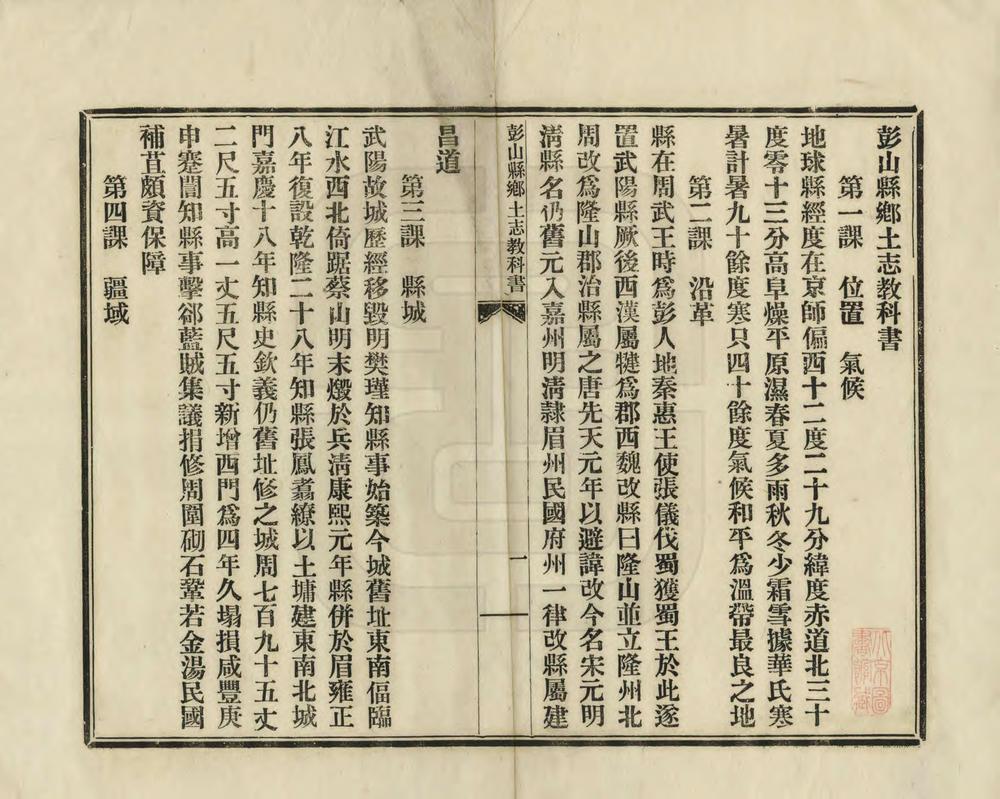 彭山縣鄉土志教科書
第一課　位置　氣候
地球縣經度在京師偏西十二度二十九分緯度赤道北三十
度零十三分高阜燥平原濕春夏多雨秋冬少霜雪據華氏寒
暑計暑九十餘度寒只四十餘度氣候和平爲溫帶最良之地
第二課　沿革
縣在周武王時爲彭人地秦惠王使張儀伐蜀獲蜀王於此遂
置武陽縣厥後西漢屬犍爲郡西魏改縣曰隆山並立隆州北
周改爲隆山郡治縣屬之唐先天元年以避諱改今名宋元明
淸縣名仍舊元入嘉州明淸隸眉州民國府州一律改縣屬建
彭山縣鄉土志教科書　一
昌道
第三課　縣城
武陽故城歷經移毀明樊瑾知縣事始築今城舊址東南偪臨
江水西北倚踞蔡山明末燬於兵淸康熙元年縣併於眉雍正
八年復設乾隆二十八年知縣張鳳翥繚以土墉建東南北城
門嘉慶十八年知縣史欽義仍舊址修之城周七百九十五丈
二尺五寸高一丈五尺五寸新增西門爲四年久塌損咸豐庚
申蹇誾知縣事擊郤藍賊集議捐修周圍砌石鞏若金湯民國
補苴頗資保障
第四課　疆域